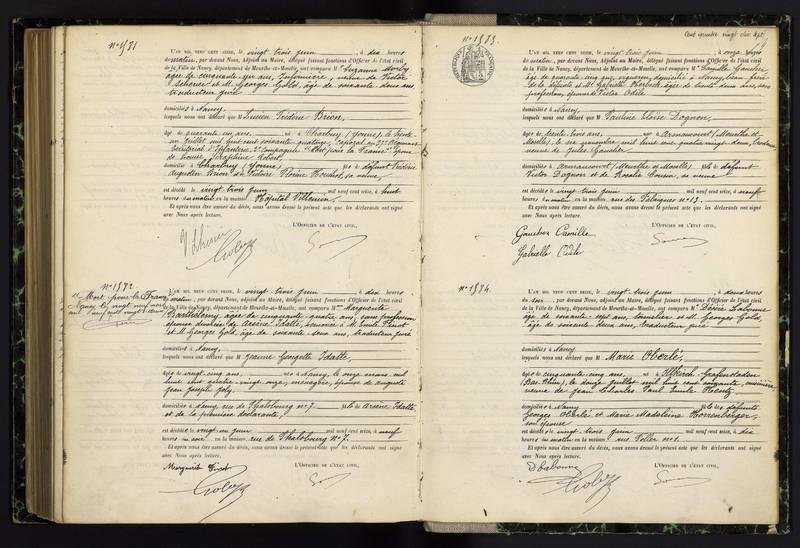 N° 1571
L'AN MIL NEUF CENT SEIZE, le vingt trois juin, à dix heures
du matin, par devant Nous, Adjoint au Maire, délégué faisant fonctions d'Officier de l'état civil
de la Ville de Nancy, département de Meurthe-et-Moselle, ont comparu M Suzanne
âgée de cinquante six ans, Infirmière, veuve de Victor
Scherer et M. Georges Gold, âgé de soixante deux ans
traducteur juré
domiciliés à Nancy
lesquels nous ont déclaré que M Lucien Frédéric Brion,
âgé de quarante un ans, né à Charbuy (Yonne), le trente
juillet mil huit cent soixante quatorze, caporal au 37e Régiment
territorial d'Infanterie, 2e Compagnie "Mort pour la France" époux
de Louise Séraphine Robert,
domicilié à Charbuy (Yonne), fils de défunt Frédéric
Augustin Brion et Victoire Florine sa veuve,
est décédé le vingt trois juin mil neuf cent seize, à huit
heures du matin en la maison Hôpital Villemin,
Et après nous être assuré du décès, nous avons dressé le présent acte que les déclarants ont signé
avec Nous après lecture.
L'OFFICIER DE L'ÉTAT CIVIL,
N° 1572
"Mort pour la France"
Nancy le vingt neuf mars
mil neuf cent vingt
L'AN MIL NEUF CENT SEIZE, le vingt trois juin, à dix heures
du matin, par devant Nous, Adjoint au Maire, délégué faisant fonctions d'Officier de l'état civil
de la Ville de Nancy, département de Meurthe-et-Moselle, ont comparu Mme Marguerite
Barthelemy, âgée de cinquante quatre ans, sans profession
épouse divorcée de Arsène Idatte, remariée à M. Emile Pinot
et M. Georges Gold, âgé de soixante deux ans, traducteur juré
domiciliés à Nancy
lesquels nous ont déclaré que M Jeanne Georgette Idatte
âgée de vingt cinq ans, née à Nancy, le onze mars mil
huit cent quatre vingt onze, ménagère, épouse de Auguste
Jean Joseph Joly
domiciliée à Nancy, rue de Phalsbourg n° 7, fille de Arsène Idatte
et de la première déclarante,
est décédée le vingt un juin mil neuf cent seize, à neuf
heures du soir en la maison rue de Phalsbourg n° 7.
Et après nous être assuré du décès, nous avons dressé le présent acte que les déclarants ont signé
avec Nous après lecture.
L'OFFICIER DE L'ÉTAT CIVIL,
Marguerite Pinot
N° 1573
L'AN MIL NEUF CENT SEIZE, le vingt trois juin, à onze heures
du matin, par devant Nous, Adjoint au Maire, délégué faisant fonctions d'Officier de l'état civil
de la Ville de Nancy, département de Meurthe-et-Moselle, ont comparu M. Camille Gaucher
âgé de quarante cinq ans, vigneron, domicilié à
de la défunte et Me Gabrielle âgée de trente deux ans, sans
profession, épouse de Victor Odile
domiciliés à Nancy
lesquels nous ont déclaré que M Pauline Eloïse Dognon,
âgée de trente trois ans, née à Arnaucourt (Meurthe et-
Moselle), le six novembre mil huit cent quatre vingt deux,
veuve de Jules Gaucher
domiciliée à Armaucourt (Meurthe et Moselle) fille de défunt
Victor Dognon et de Rosalie Cousin, sa veuve
est décédée le vingt trois juin mil neuf cent seize, à neuf
heures du matin en la maison, rue des Fabriques n° 13.
Et après nous être assuré du décès, nous avons dressé le présent acte que les déclarants ont signé
avec Nous après lecture.
L'OFFICIER DE L'ÉTAT CIVIL,
Gaucher Camille
Gabrielle Odile
N° 1574.
L'AN MIL NEUF CENT SEIZE, le vingt trois juin, à deux heures
du soir, par devant Nous, Adjoint au Maire, délégué faisant fonctions d'Officier de l'état civil
de la Ville de Nancy, département de Meurthe-et-Moselle, ont comparu M. Désiré Labonne
âgé de soixante sept ans, et M. Georges Gold,
âgé de soixante deux ans, traducteur juré
domiciliés à Nancy
lesquels nous ont déclaré que M Marie Oberlé,
âgée de cinquante cinq ans, née à Illkirch-Grafenstaden
(Bas-Rhin), le douze juillet mil huit cent soixante,
veuve de Jean Charles Paul Emile Hentz
domiciliée à Nancy fille des défunts
Georges Oberlé et Marie Madeleine
son épouse
est décédée le vingt trois juin mil neuf cent seize, à dix
heures du matin en la maison rue n° 1.
Et après nous être assuré du décès, nous avons dressé le présent acte que les déclarants ont signé
avec Nous après lecture.
L'OFFICIER DE L'ÉTAT CIVIL,
DLabonne